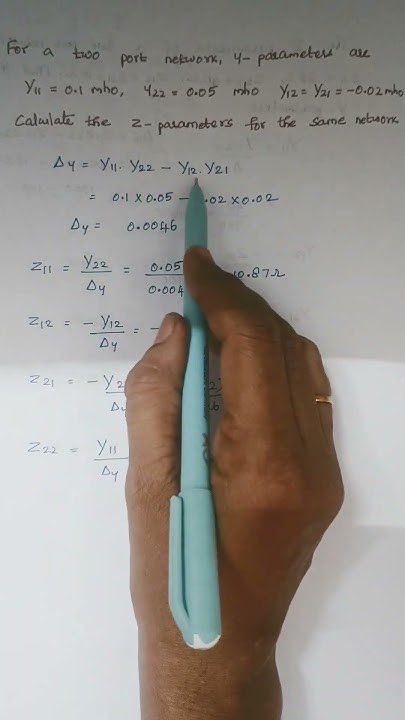 For a two port network, Y-parameters are
Y11 = 0.1 mho, Y22 = 0.05 mho Y12 = Y21 = -0.02 mho
Calculate the Z-parameters for the same network
Δy = Y11 . Y22 - Y12 . Y21
= 0.1 x 0.05 - .02 x 0.02
Δy = 0.0046
Z11 = Y22/Δy = 0.05/0.004 0.87Ω
Z12 = -Y12/Δy = -
Z21 = -Y2/Δy
Z22 = Y11/Δy